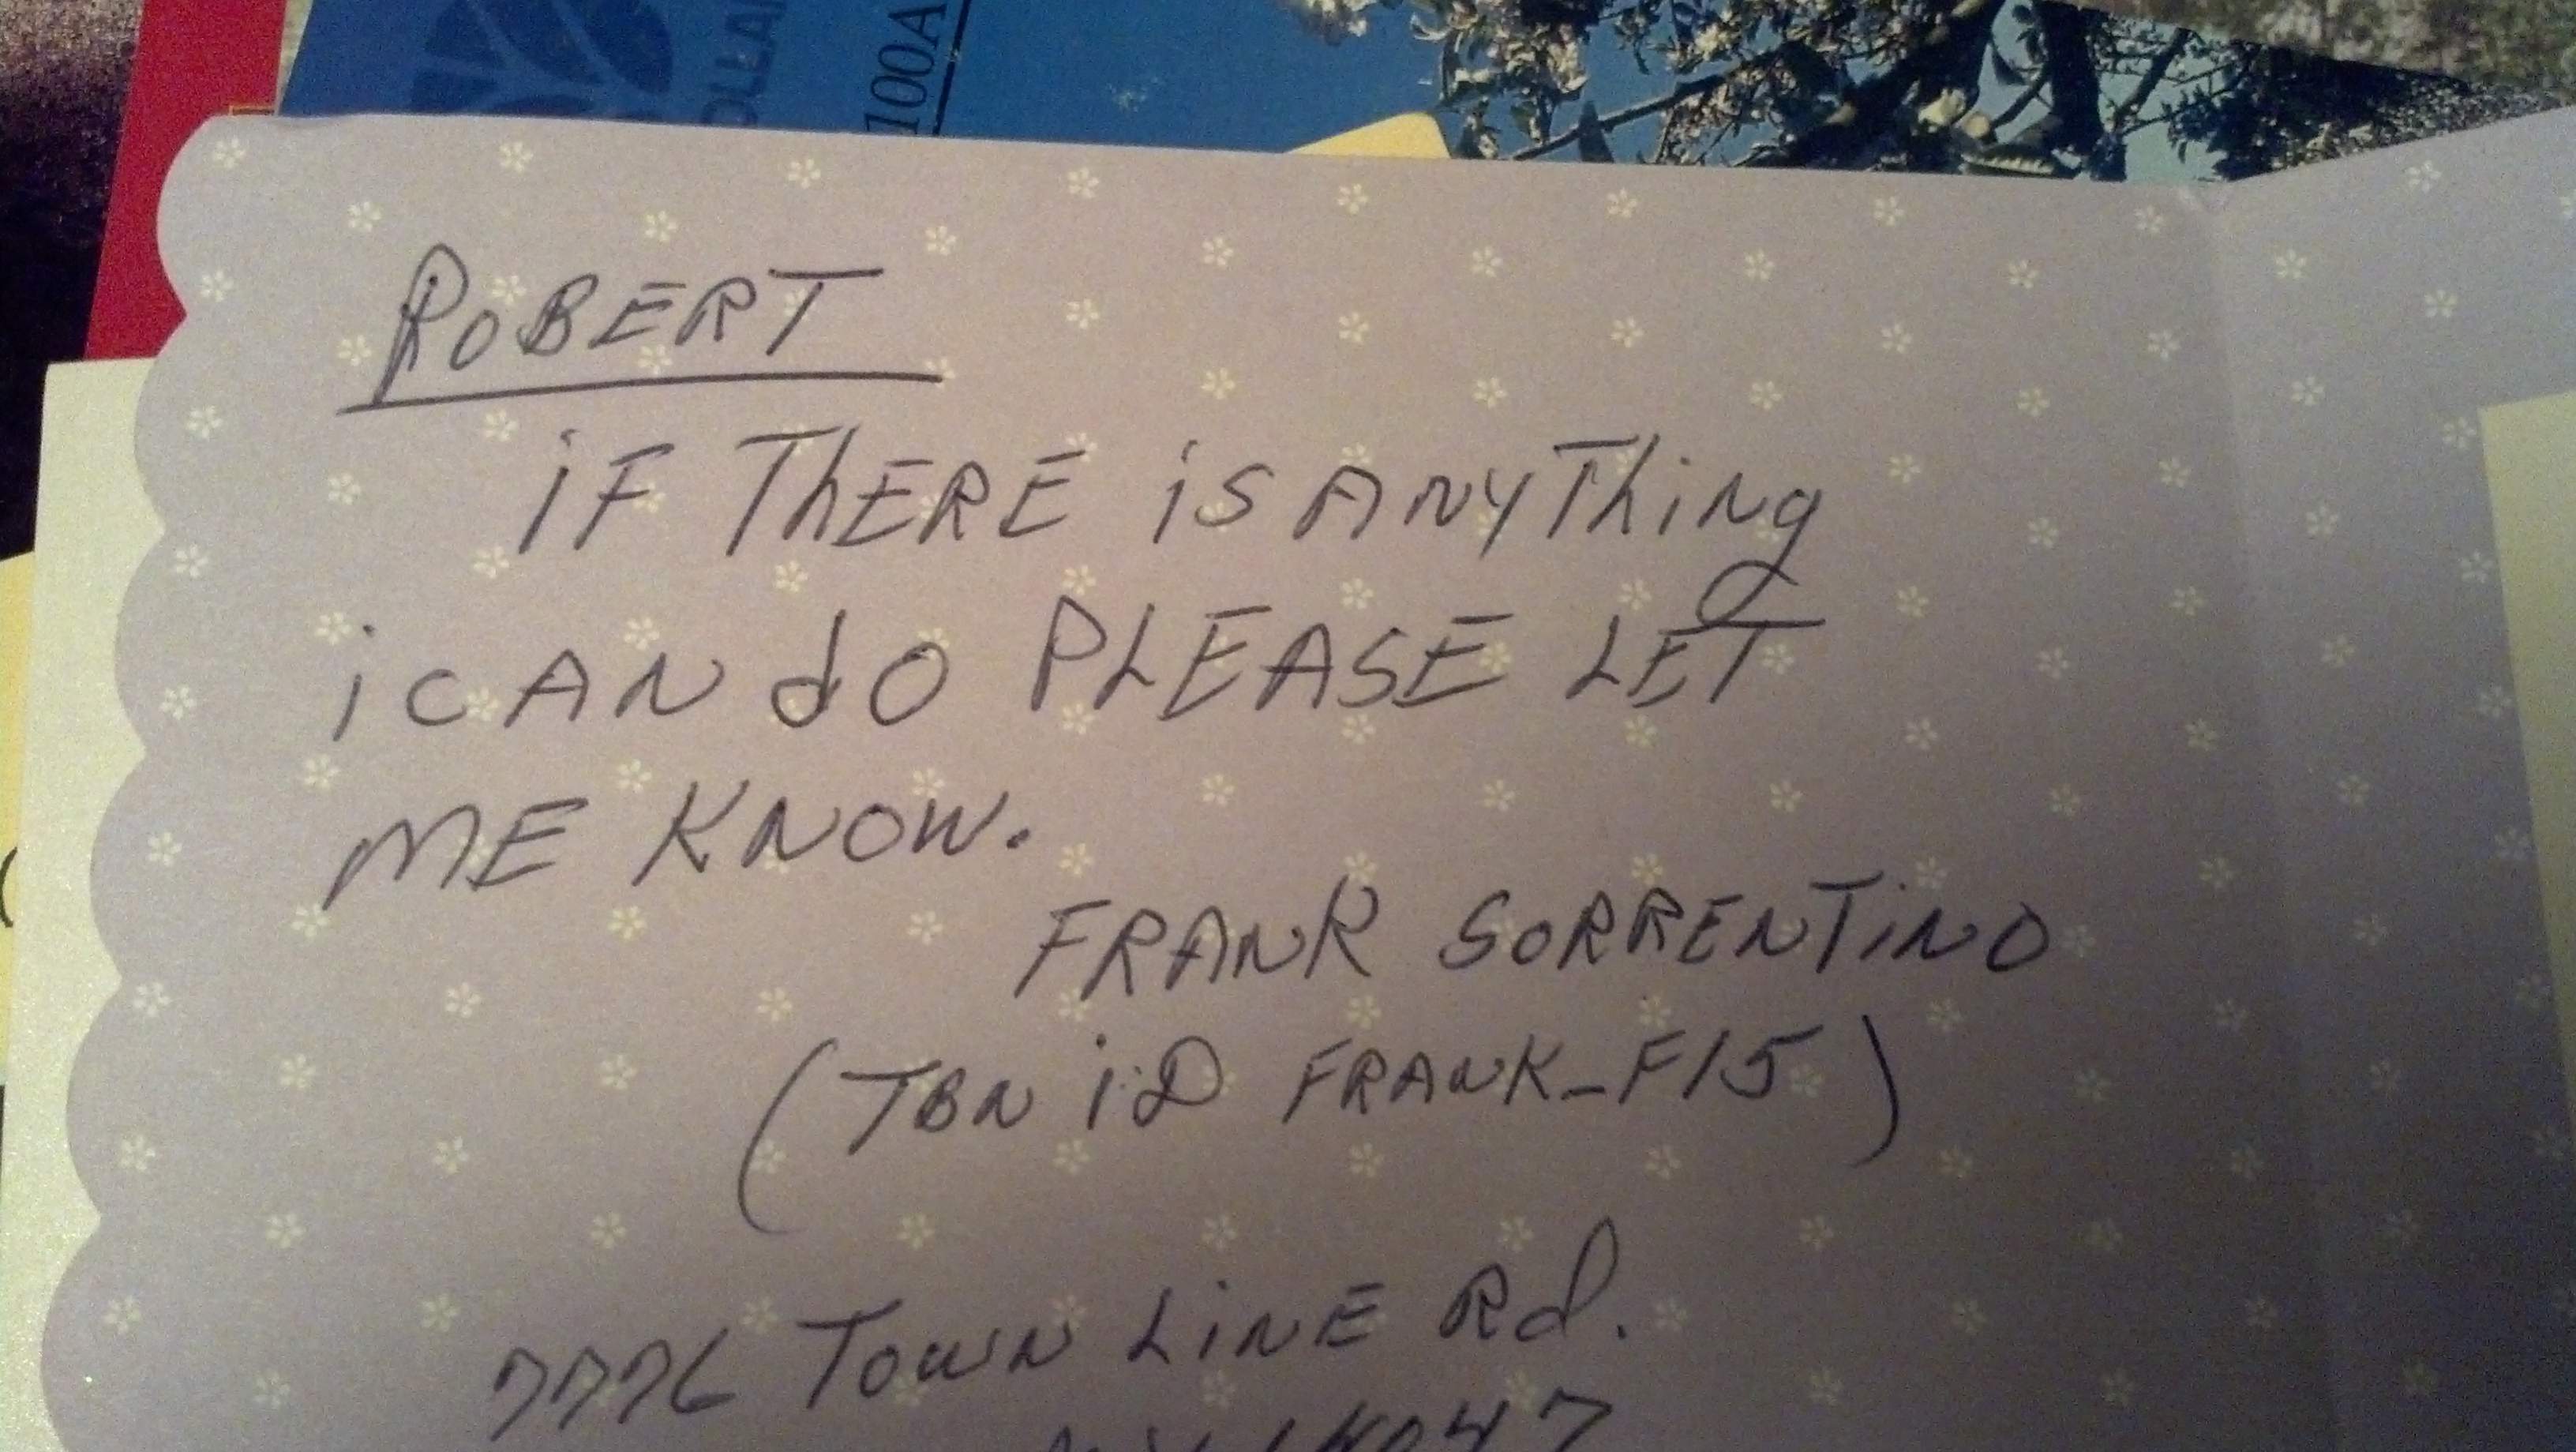 OLLAR
100A
ROBERT
iF ThERE iS ANYThing
i CAN dO PLEASE LET
ME KNOW.
FRANK SORRENTiNO
(TBN iD FRANK_F15)
7776 TOWN LiNE Rd.